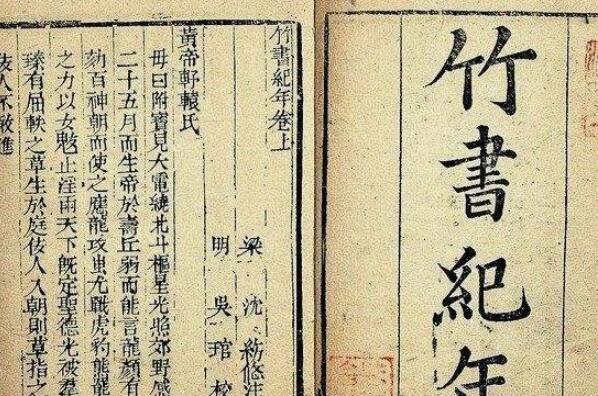 竹書紀年
竹書紀年卷上
梁 沈 約附注
明 吳 琯 校
黃帝軒轅氏
母曰附寶見大電繞北斗樞星光照郊野感
二十五月而生帝於壽丘弱而能言龍顏有
劾百神朝而使之應龍攻蚩尤戰虎豹熊羆
之力以女魃止淫雨天下既定聖德光被羣
臻有屈軼之草生於庭佞人入朝則草指之
佞人不敢進